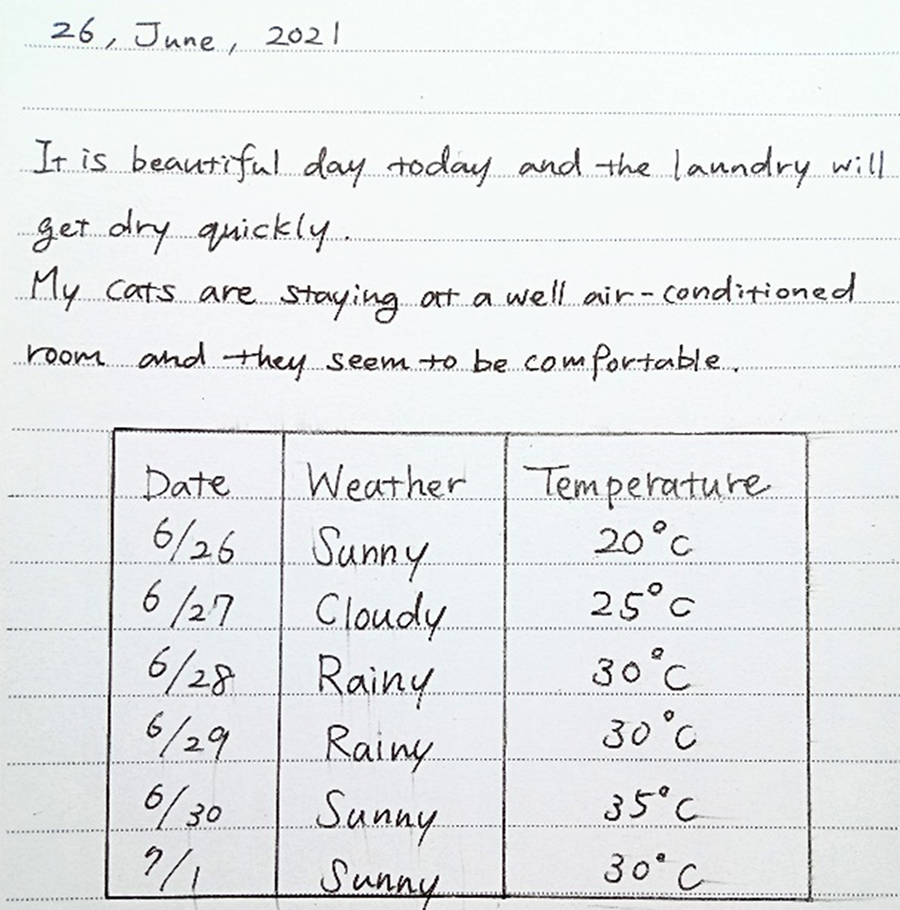 26, June, 2021
It is beautiful day today and the laundry will
get dry quickly.
My cats are staying at a well air-conditioned
room and they seem to be comfortable.
Date Weather Temperature
6/26 Sunny 20°C
6/27 Cloudy 25°C
6/28 Rainy 30°C
6/29 Rainy 30°C
6/30 Sunny 35°C
7/1 Sunny 30°C